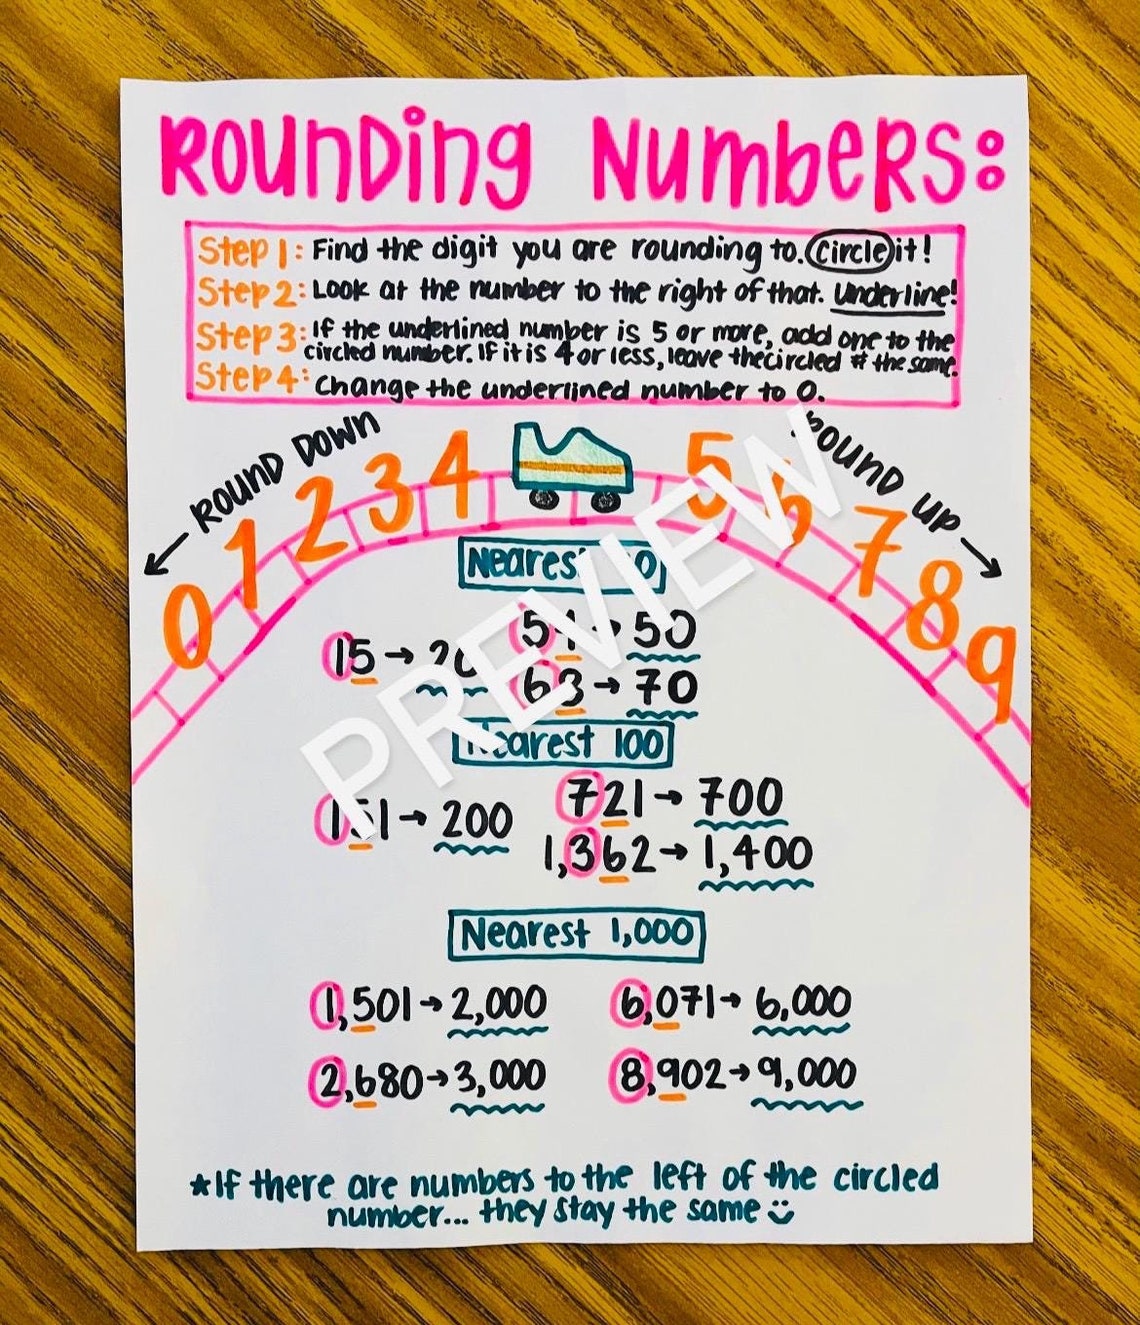 Rounding Numbers:
Step 1: Find the digit you are rounding to. Circle it!
Step 2: Look at the number to the right of that. Underline!
Step 3: If the underlined number is 5 or more, add one to the
circled number. If it is 4 or less, leave the circled # the same.
Step 4: Change the underlined number to 0.
← Round Down
Round Up →
0 1 2 3 4 5 6 7 8 9
Nearest 10
15 → 20
→ 50
→ 70
Nearest 100
151 → 200
721 → 700
1,362 → 1,400
Nearest 1,000
1,501 → 2,000
6,071 → 6,000
2,680 → 3,000
8,902 → 9,000
*If there are numbers to the left of the circled
number... they stay the same
PREVIEW